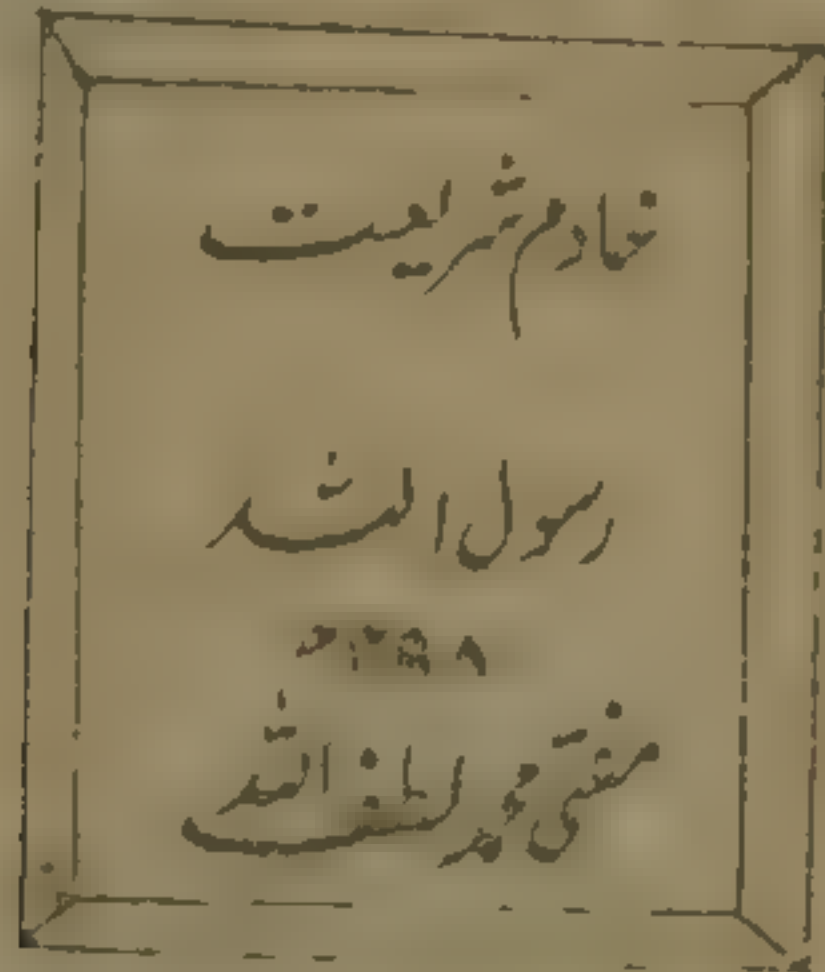 خادم شریعت
رسول اللہ
مفتی محمد لطف اللہ